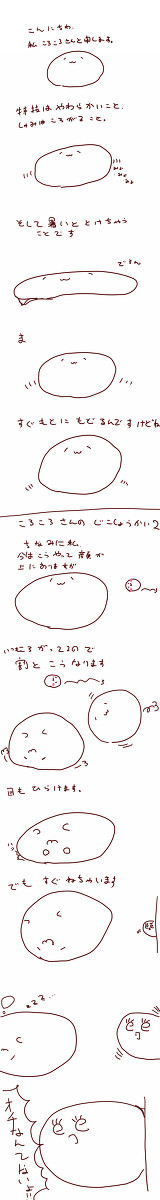 こんにちわ。
私 ころころさんと申します。
特技は やわらかいこと。
しゅみは ころがること。
そして 暑いと とけちゃう
ことです
でろん
ま
すぐもとに もどるんですけどね
ころころさんの じこしょうかい2
ちなみに私、
今は こうやって 顔が
上にありますが
いつもころがってるので
割と こうなります
目も ひらけます。
でも すぐねちゃいます
zzz...
オチなんてないよ!!